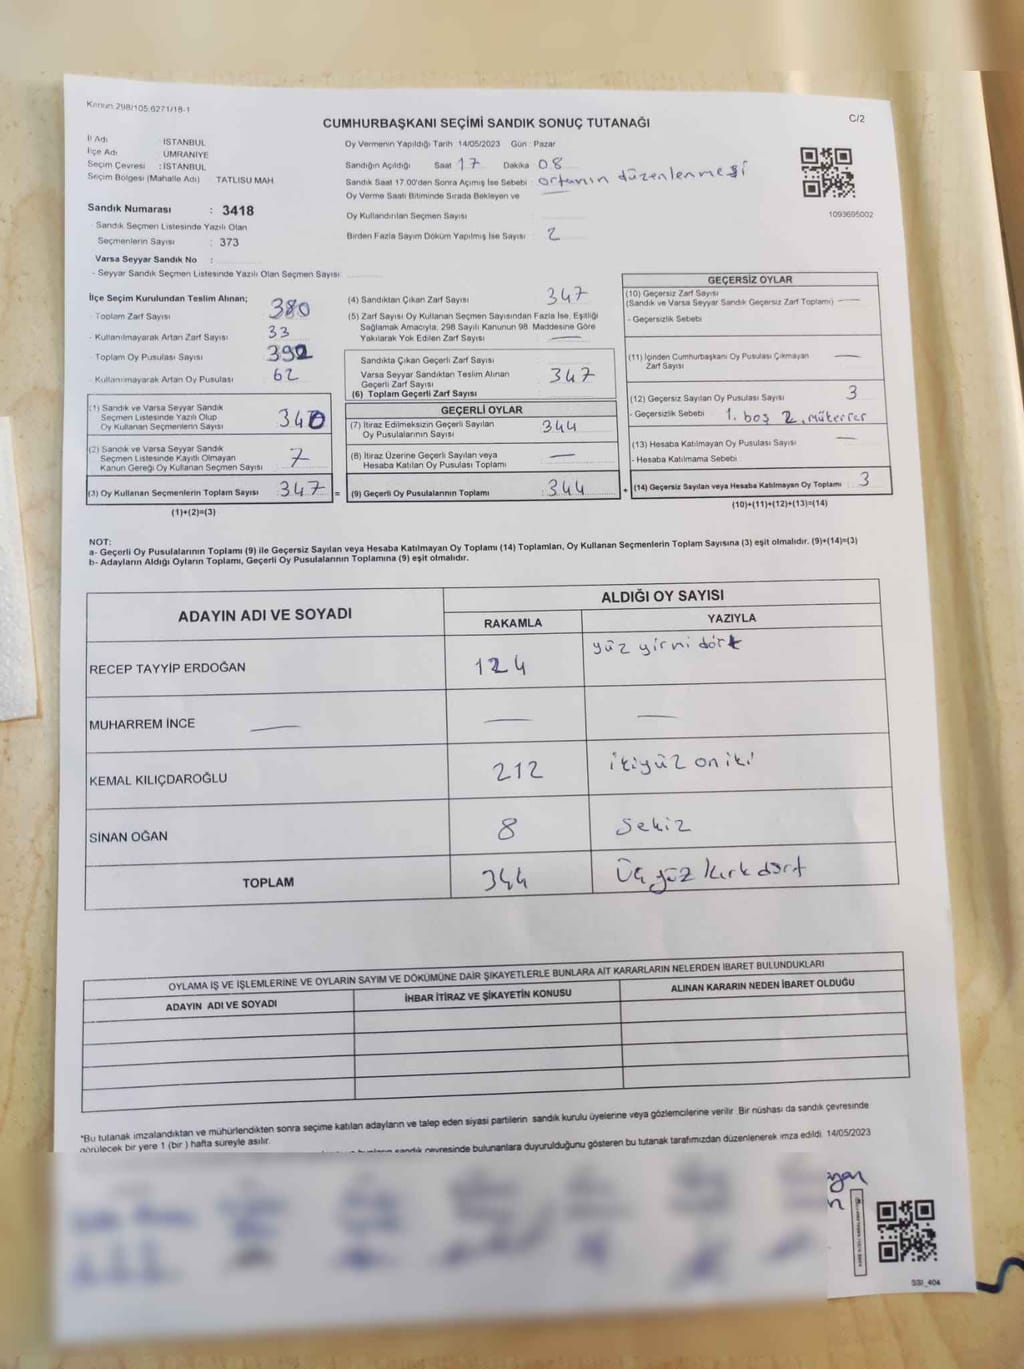 Kanun 298/105.6271/18-1
C/2
CUMHURBAŞKANI SEÇİMİ SANDIK SONUÇ TUTANAĞI
İl Adı İSTANBUL
İlçe Adı ÜMRANİYE
Seçim Çevresi : İSTANBUL
Seçim Bölgesi (Mahalle Adı) TATLISU MAH
Oy Vermenin Yapıldığı Tarih 14/05/2023 Gün : Pazar
Sandığın Açıldığı Saat 17 Dakika 08
Sandık Saat 17.00'den Sonra Açımış İse Sebebi ortamın düzenlenmesi
Oy Verme Saati Bitiminde Sırada Bekleyen ve
Oy Kullandırılan Seçmen Sayısı
Birden Fazla Sayım Döküm Yapılmış İse Sayısı 2
1093695002
Sandık Numarası : 3418
Sandık Seçmen Listesinde Yazılı Olan
Seçmenlerin Sayısı : 373
Varsa Seyyar Sandık No :
- Seyyar Sandık Seçmen Listesinde Yazılı Olan Seçmen Sayısı
İlçe Seçim Kurulundan Teslim Alınan;
- Toplam Zarf Sayısı 380
- Kullanılmayarak Artan Zarf Sayısı 33
- Toplam Oy Pusulası Sayısı 392
- Kullanılmayarak Artan Oy Pusulası 62
(1) Sandık ve Varsa Seyyar Sandık
Seçmen Listesinde Yazılı Olup
Oy Kullanan Seçmenlerin Sayısı 340
(2) Sandık ve Varsa Seyyar Sandık
Seçmen Listesinde Kayıtlı Olmayan
Kanun Gereği Oy Kullanan Seçmen Sayısı 7
(3) Oy Kullanan Seçmenlerin Toplam Sayısı 347 =
(1)+(2)=(3)
(4) Sandıktan Çıkan Zarf Sayısı 347
(5) Zarf Sayısı Oy Kullanan Seçmen Sayısından Fazla İse, Eşitliği
Sağlamak Amacıyla, 298 Sayılı Kanunun 98. Maddesine Göre
Yakılarak Yok Edilen Zarf Sayısı —
Sandıkta Çıkan Geçerli Zarf Sayısı
Varsa Seyyar Sandıktan Teslim Alınan
Geçerli Zarf Sayısı
(6) Toplam Geçerli Zarf Sayısı 347
GEÇERLİ OYLAR
(7) İtiraz Edilmeksizin Geçerli Sayılan
Oy Pusulalarının Sayısı 344
(8) İtiraz Üzerine Geçerli Sayılan veya
Hesaba Katılan Oy Pusulası Toplamı —
(9) Geçerli Oy Pusulalarının Toplamı 344 +
GEÇERSİZ OYLAR
(10) Geçersiz Zarf Sayısı
(Sandık ve Varsa Seyyar Sandık Geçersiz Zarf Toplamı) —
- Geçersizlik Sebebi
(11) İçinden Cumhurbaşkanı Oy Pusulası Çıkmayan
Zarf Sayısı —
(12) Geçersiz Sayılan Oy Pusulası Sayısı 3
- Geçersizlik Sebebi 1. boş 2. mükerrer
(13) Hesaba Katılmayan Oy Pusulası Sayısı —
- Hesaba Katılmama Sebebi
(14) Geçersiz Sayılan veya Hesaba Katılmayan Oy Toplamı 3
(10)+(11)+(12)+(13)=(14)
NOT:
a- Geçerli Oy Pusulalarının Toplamı (9) ile Geçersiz Sayılan veya Hesaba Katılmayan Oy Toplamı (14) Toplamları, Oy Kullanan Seçmenlerin Toplam Sayısına (3) eşit olmalıdır. (9)+(14)=(3)
b- Adayların Aldığı Oyların Toplamı, Geçerli Oy Pusulalarının Toplamına (9) eşit olmalıdır.
ADAYIN ADI VE SOYADI
ALDIĞI OY SAYISI
RAKAMLA YAZIYLA
RECEP TAYYİP ERDOĞAN 124 yüz yirmi dört
MUHARREM İNCE — — —
KEMAL KILIÇDAROĞLU 212 ikiyüz on iki
SİNAN OĞAN 8 Sekiz
TOPLAM 344 Üç yüz kırk dört
OYLAMA İŞ VE İŞLEMLERİNE VE OYLARIN SAYIM VE DÖKÜMÜNE DAİR ŞİKAYETLERLE BUNLARA AİT KARARLARIN NELERDEN İBARET BULUNDUKLARI
ADAYIN ADI VE SOYADI İHBAR İTİRAZ VE ŞİKAYETİN KONUSU ALINAN KARARIN NEDEN İBARET OLDUĞU
*Bu tutanak imzalandıktan ve mühürlendikten sonra seçime katılan adayların ve talep eden siyasi partilerin sandık kurulu üyelerine veya gözlemcilerine verilir. Bir nüshası da sandık çevresinde
görülecek bir yere 1 (bir ) hafta süreyle asılır.
sandık çevresinde bulunanlara duyurulduğunu gösteren bu tutanak tarafımızdan düzenlenerek imza edildi. 14/05/2023
SSI_404